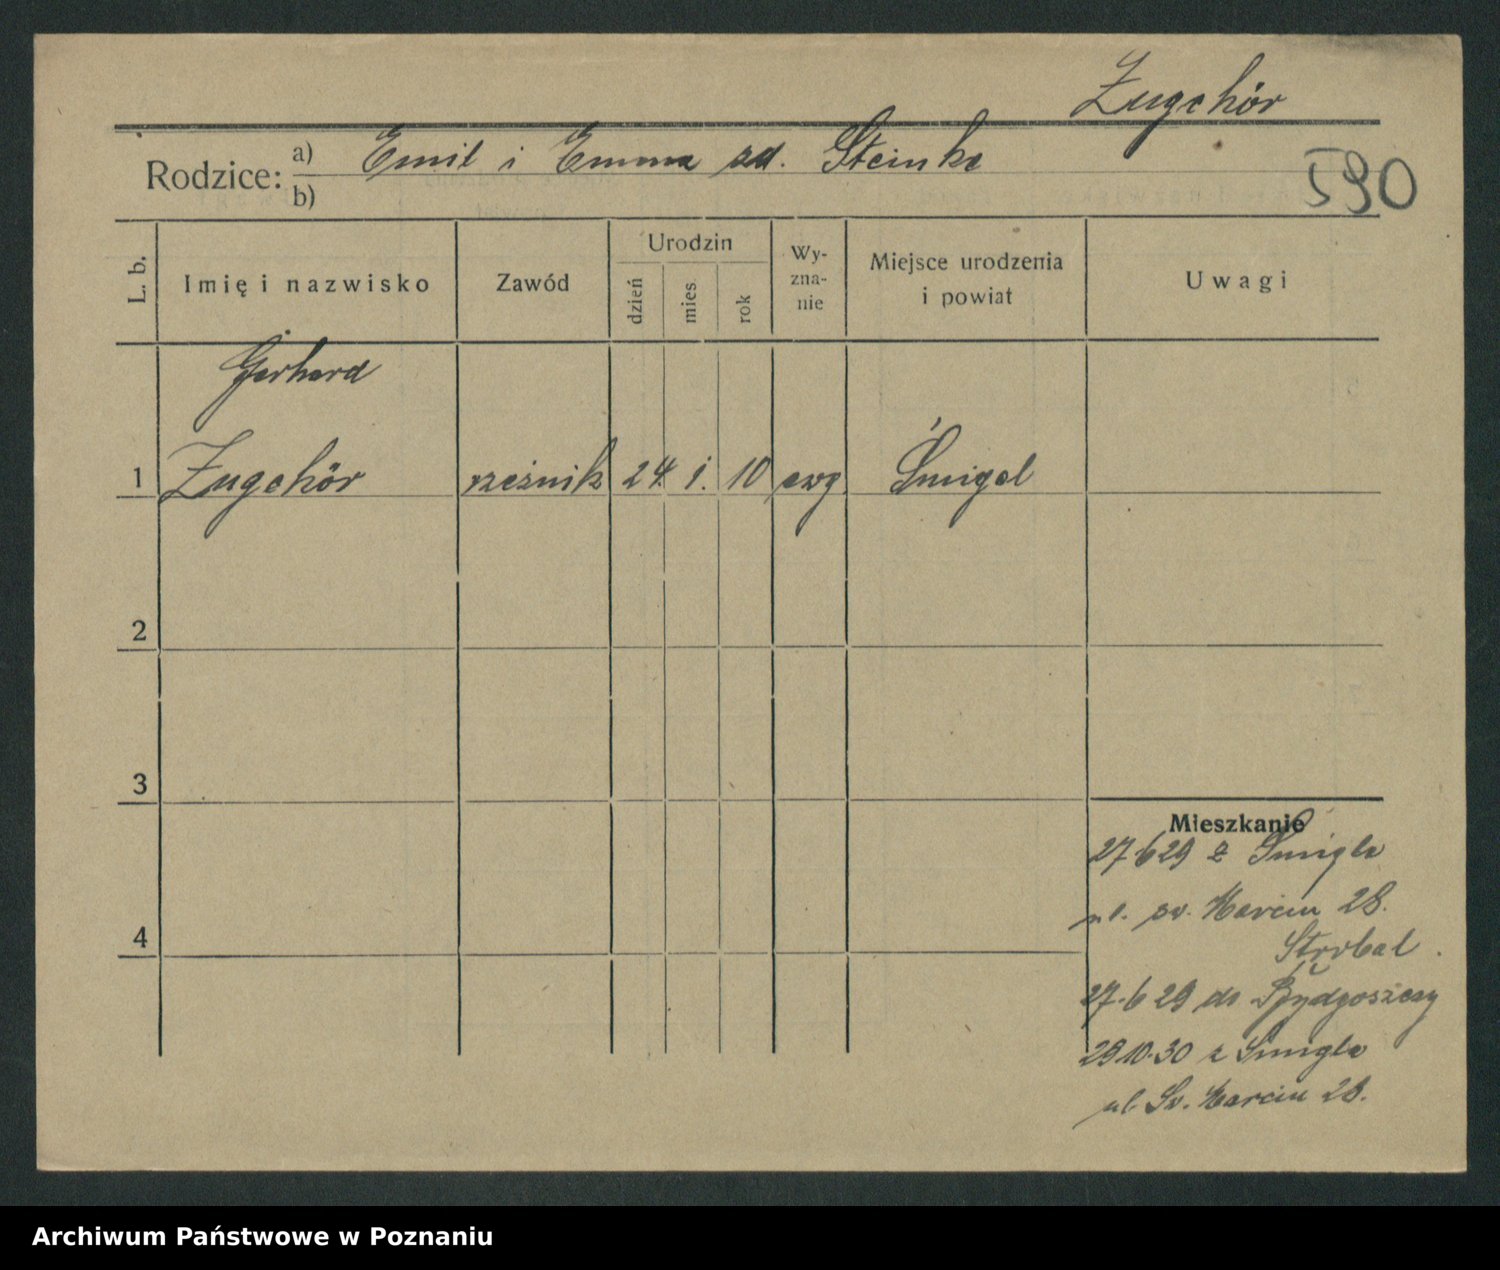 Zugehör
Rodzice: a) Emil i Emma zd. Steinke
b)
590
L. b.
Imię i nazwisko
Zawód
Urodzin
dzień
mies.
rok
Wy-
zna-
nie
Miejsce urodzenia
i powiat
Uwagi
Gerhard
1 Zugehör rzeźnik 24. 1. 10 ewg Śmigel
2
3
4
Mieszkanie
27 6 29 z Śmigla
ul. sw. Marcin 28.
27.6 29 do Bydgoszczy
29 10.30 z Śmigla
ul. Sw. Marcin 28.
Archiwum Państwowe w Poznaniu